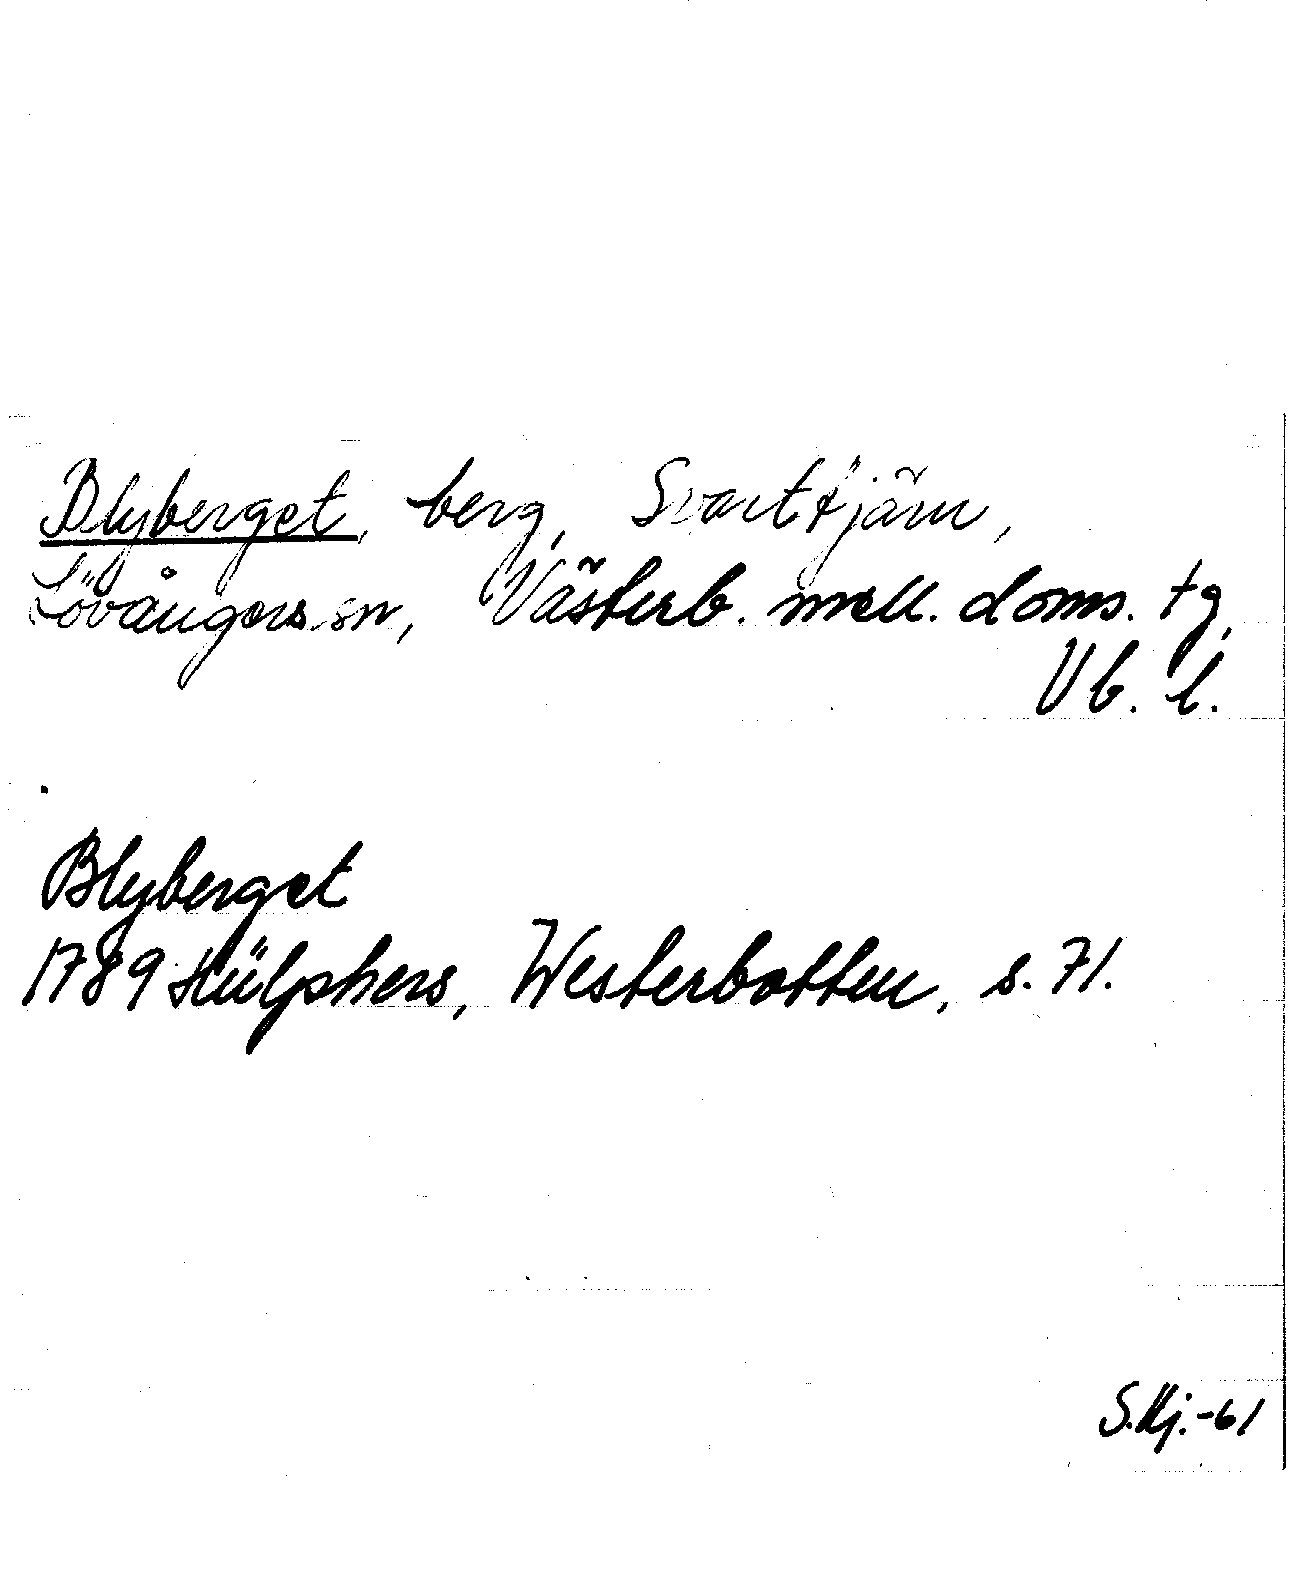 Blyberget, berg, Svarttjärn,
Lövångers sn, Västerb. mell. doms. tg,
Vb. l.
Blyberget
1789 Hülphers, Westerbotten, s. 71.
S.Hj.-61